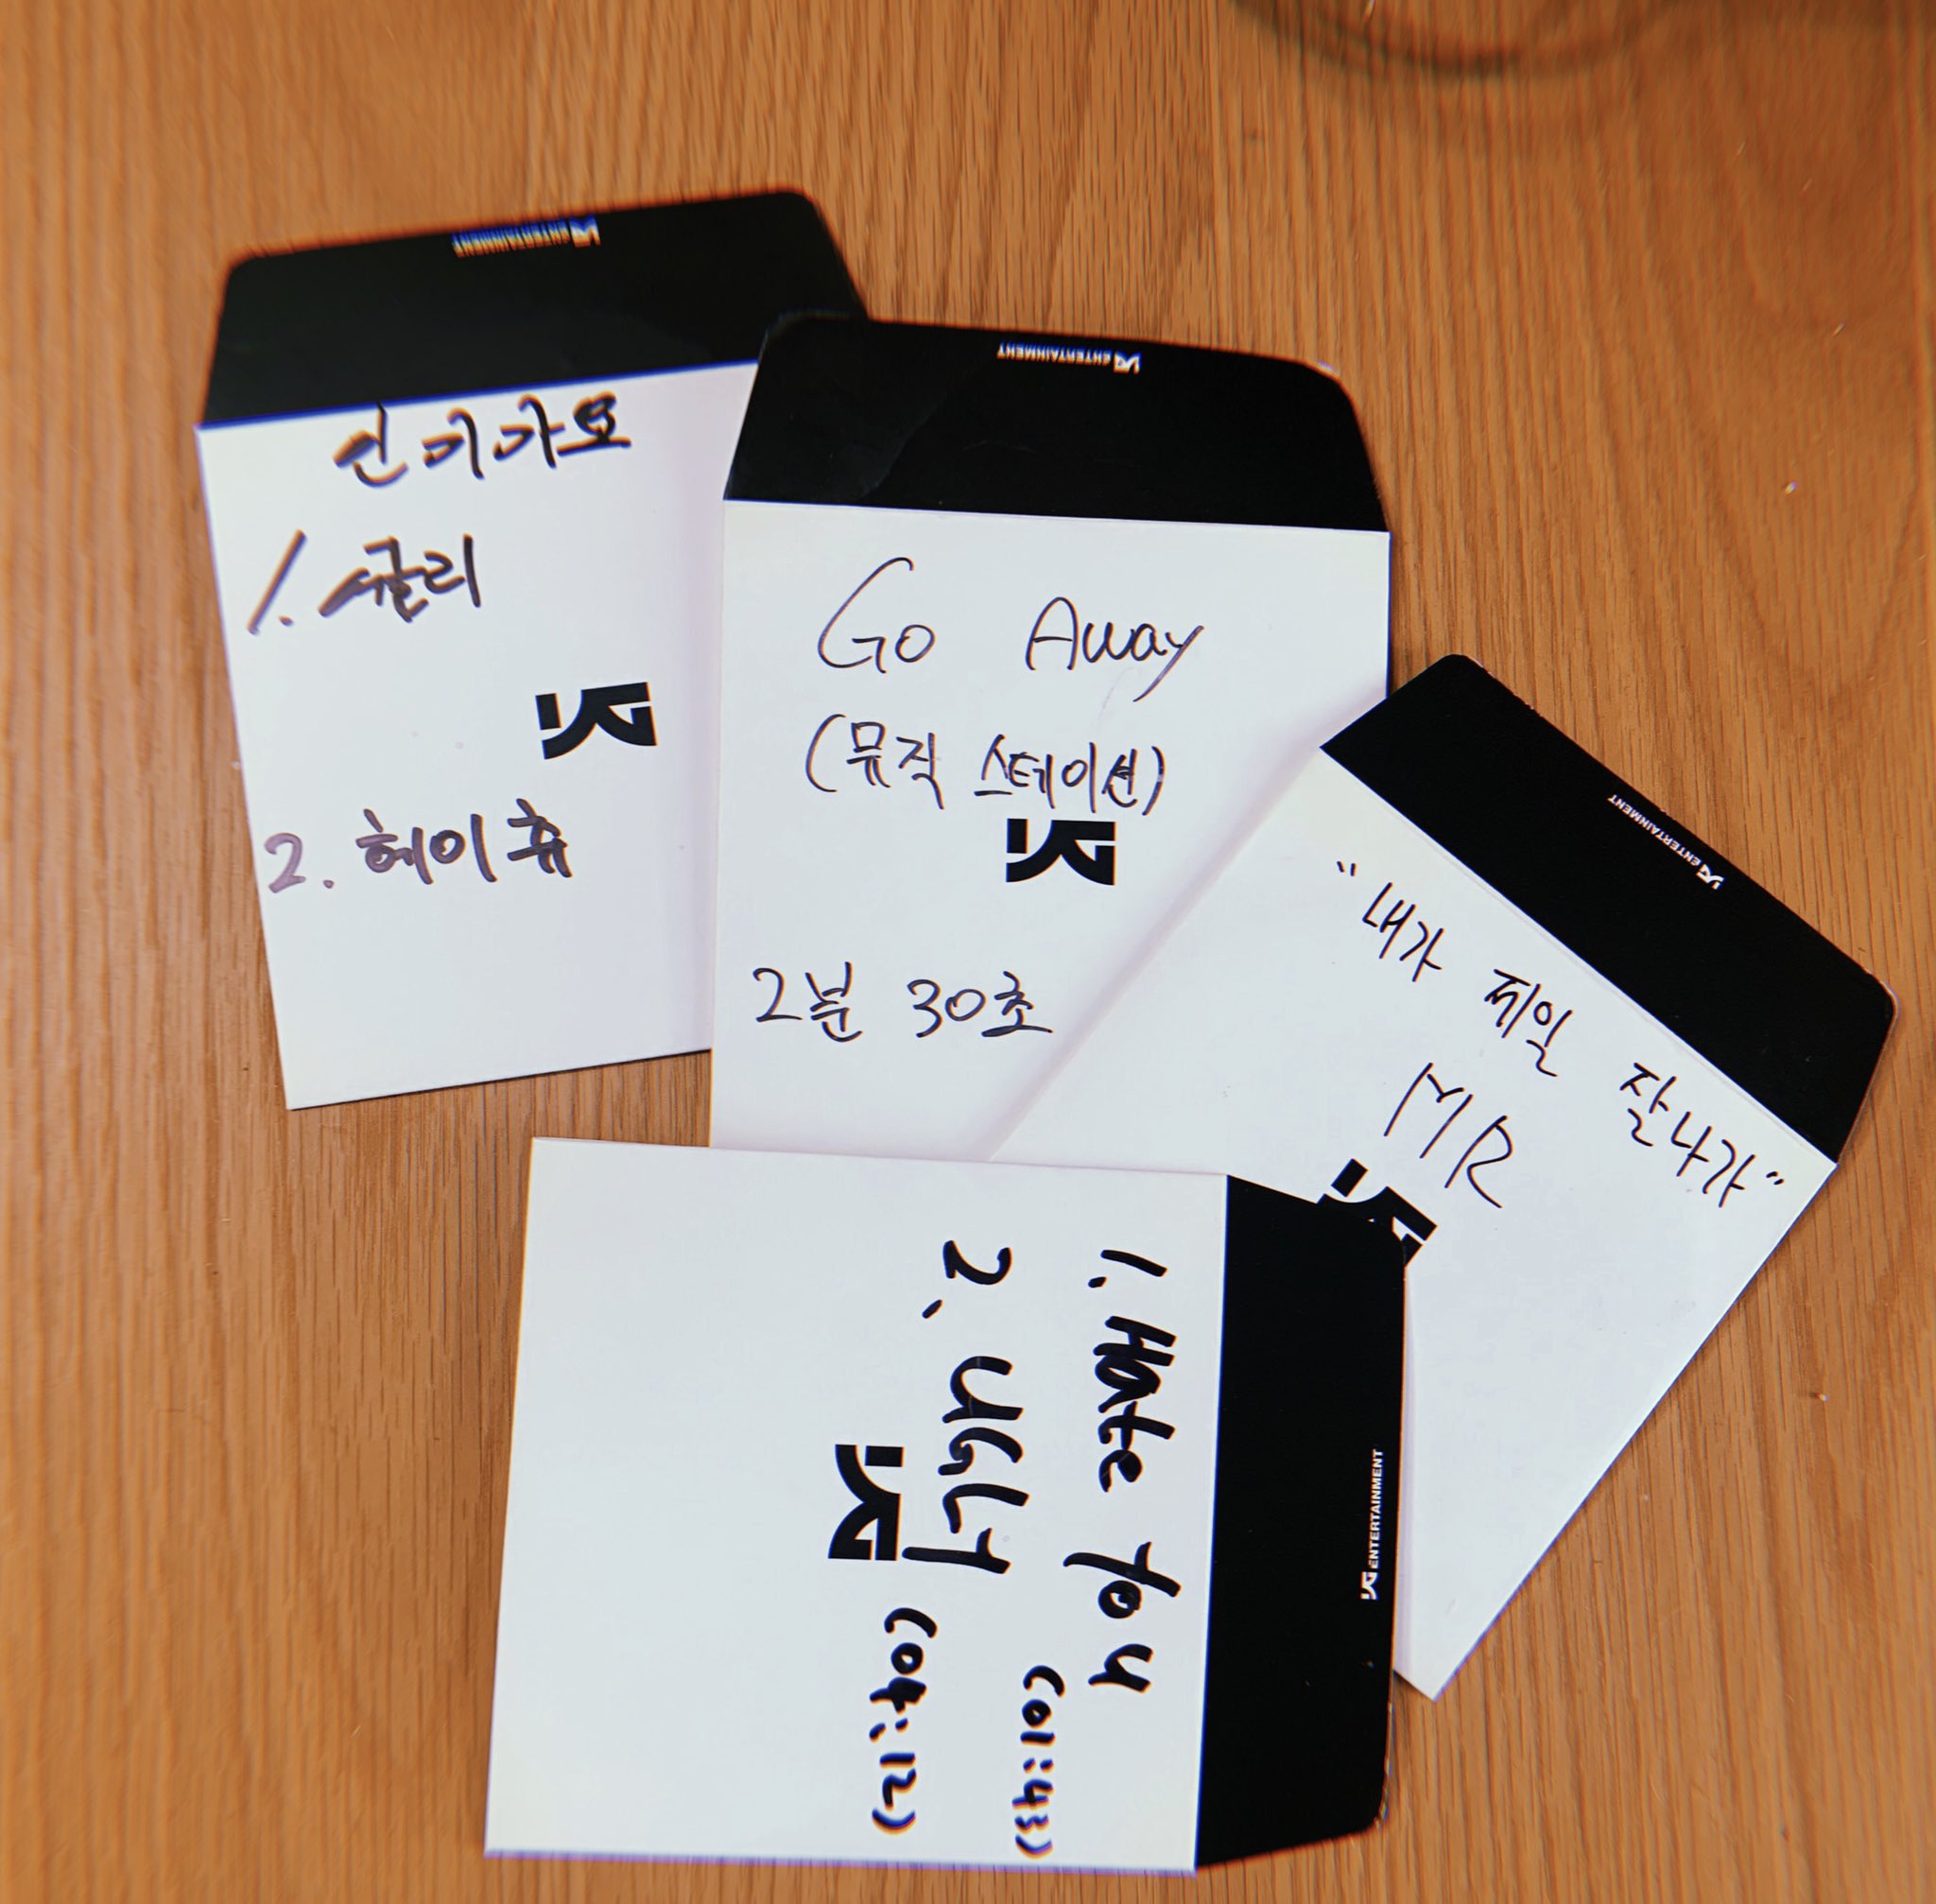 YG ENTERTAINMENT
인기가요
1. 귤리
YG
2. 헤이츄
YG ENTERTAINMENT
Go Away
(뮤직 스테이션)
YG
2분 30초
YG ENTERTAINMENT
"내가 제일 잘나가"
MR
YG
YG ENTERTAINMENT
1. Hate You
(01:43)
2. UGLY
(04:12)
YG